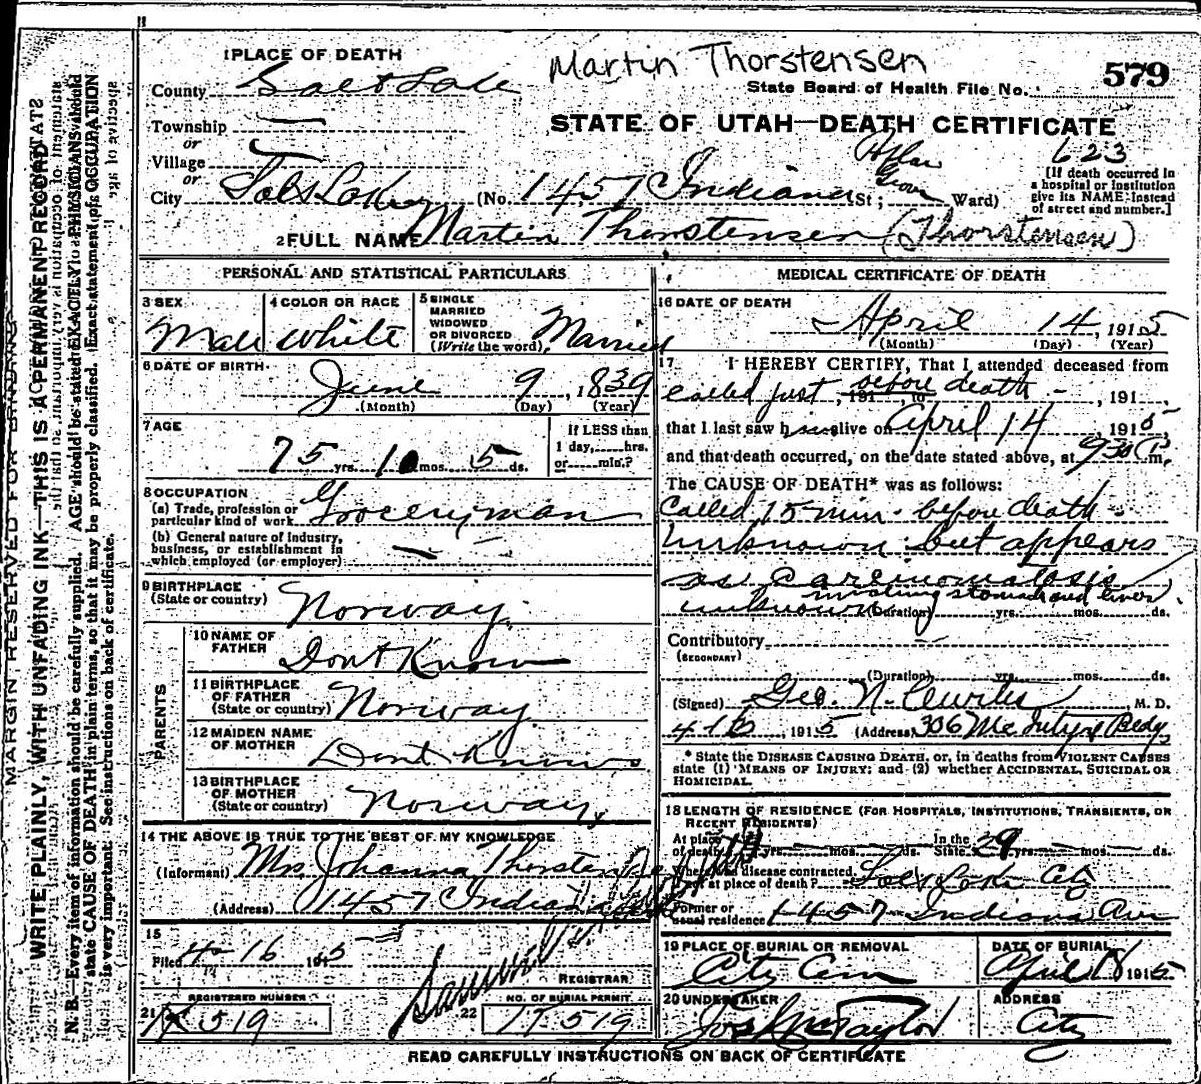 Martin Thorstensen
579
State Board of Health File No.
STATE OF UTAH—DEATH CERTIFICATE
1 PLACE OF DEATH
County Salt Lake
Township
or
Village
or
City Salt Lake (No. 1457 Indiana St; Poplar Grove Ward)
623
[If death occurred in a hospital or institution give its NAME instead of street and number.]
2 FULL NAME Martin Thorstensen (Thorstensen)
PERSONAL AND STATISTICAL PARTICULARS
3 SEX
Male
4 COLOR OR RACE
White
5 SINGLE
MARRIED
WIDOWED
OR DIVORCED
(Write the word)
Married
6 DATE OF BIRTH
June 9, 1839
(Month) (Day) (Year)
7 AGE
75 yrs. 10 mos. 5 ds.
If LESS than
1 day, hrs.
or min.?
8 OCCUPATION
(a) Trade, profession or
particular kind of work Groceryman
(b) General nature of industry,
business, or establishment in
which employed (or employer)
9 BIRTHPLACE
(State or country) Norway
PARENTS
10 NAME OF
FATHER Dont Know
11 BIRTHPLACE
OF FATHER
(State or country) Norway
12 MAIDEN NAME
OF MOTHER Dont Know
13 BIRTHPLACE
OF MOTHER
(State or country) Norway
14 THE ABOVE IS TRUE TO THE BEST OF MY KNOWLEDGE
(Informant) Mrs Johanna Thorstensen
(Address) 1457 Indiana
15
Filed 4-16 1915
REGISTRAR
REGISTERED NUMBER
21 519
NO. OF BURIAL PERMIT
22 519
MEDICAL CERTIFICATE OF DEATH
16 DATE OF DEATH
April 14, 1915
(Month) (Day) (Year)
17 I HEREBY CERTIFY, That I attended deceased from
called just before death, 191 , to , 191
that I last saw h alive on April 14, 1915
and that death occurred, on the date stated above, at 930 P m.
The CAUSE OF DEATH* was as follows:
Called 15 min. before death
unknown but appears
as carcinomatosis
involving stomach and liver
unknown (Duration) yrs. mos. ds.
Contributory
(SECONDARY)
(Duration) yrs. mos. ds.
(Signed) Geo. N. Curtis, M. D.
4 16, 1915 (Address) 306 McIntyre Bldg
* State the DISEASE CAUSING DEATH, or, in deaths from VIOLENT CAUSES
state (1) MEANS OF INJURY; and (2) whether ACCIDENTAL, SUICIDAL OR
HOMICIDAL.
18 LENGTH OF RESIDENCE (FOR HOSPITALS, INSTITUTIONS, TRANSIENTS, OR
RECENT RESIDENTS)
At place
of death yrs. mos. ds. In the State 29 yrs. mos. ds.
Where was disease contracted,
if not at place of death? Salt Lake City
Former or
usual residence 1457 Indiana Ave
19 PLACE OF BURIAL OR REMOVAL
City Cem
DATE OF BURIAL
April 18 1915
20 UNDERTAKER
Jos Wm Taylor
ADDRESS
City
READ CAREFULLY INSTRUCTIONS ON BACK OF CERTIFICATE
MARGIN RESERVED FOR BINDING
WRITE PLAINLY, WITH UNFADING INK—THIS IS A PERMANENT RECORD
N. B.—Every item of information should be carefully supplied. AGE should be stated EXACTLY. PHYSICIANS should
state CAUSE OF DEATH in plain terms, so that it may be properly classified. Exact statement of OCCUPATION
is very important. See instructions on back of certificate.